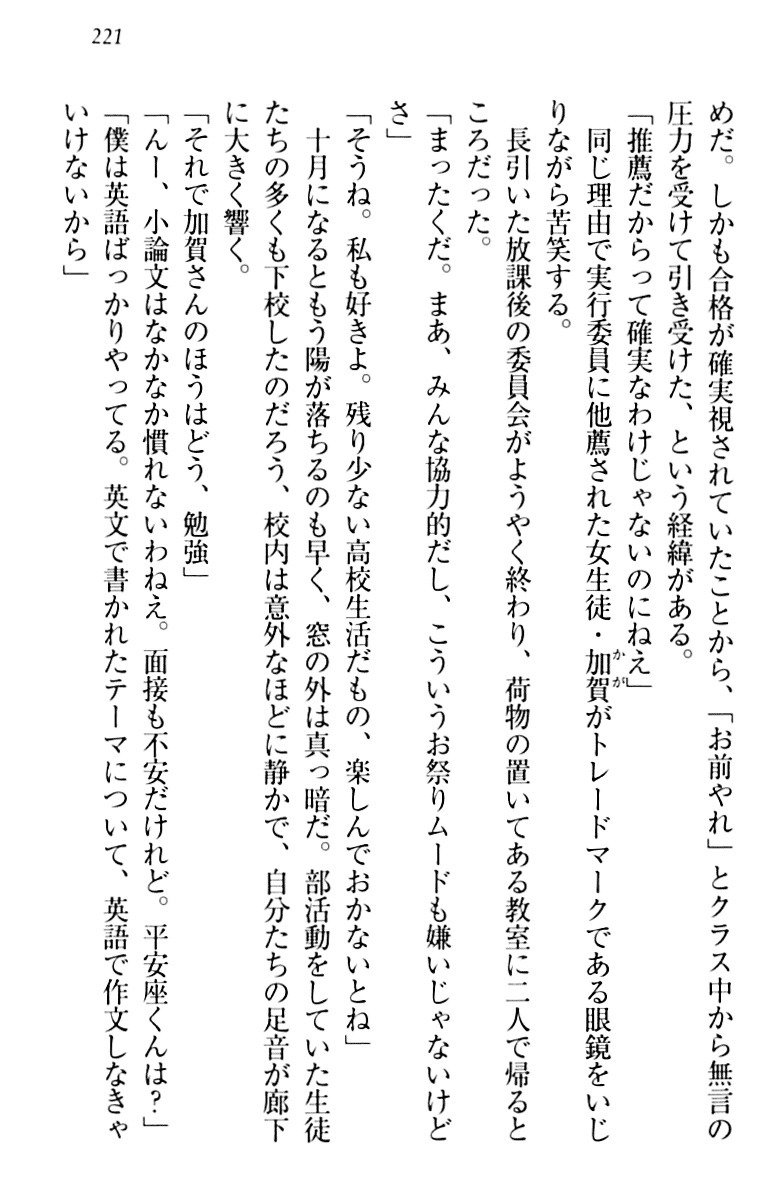 221
めだ。しかも合格が確実視されていたことから、「お前やれ」とクラス中から無言の
圧力を受けて引き受けた、という経緯がある。
「推薦だからって確実なわけじゃないのにねえ」
同じ理由で実行委員に他薦された女生徒・加賀がトレードマークである眼鏡をいじ
りながら苦笑する。
長引いた放課後の委員会がようやく終わり、荷物の置いてある教室に二人で帰ると
ころだった。
「まったくだ。まあ、みんな協力的だし、こういうお祭りムードも嫌いじゃないけど
さ」
「そうね。私も好きよ。残り少ない高校生活だもの、楽しんでおかないとね」
十月になるともう陽が落ちるのも早く、窓の外は真っ暗だ。部活動をしていた生徒
たちの多くも下校したのだろう、校内は意外なほどに静かで、自分たちの足音が廊下
に大きく響く。
「それで加賀さんのほうはどう、勉強」
「んー、小論文はなかなか慣れないわねえ。面接も不安だけれど。平安座くんは?」
「僕は英語ばっかりやってる。英文で書かれたテーマについて、英語で作文しなきゃ
いけないから」